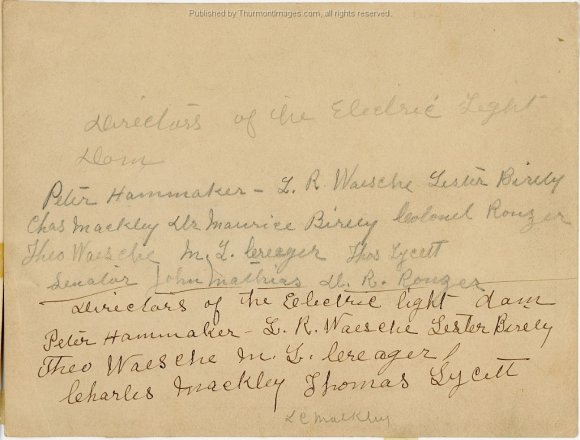 Published by Thurmontimages.com, all rights reserved.
Directors of the Electric Light
Dam
Peter Hammaker - L. R. Waesche Lester Birely
Chas Mackley Dr Maurice Birely Colonel Rouzer
Theo Waesche M. L. Creager Thos Lycett
Senator John Mathias D. R. Rouzer
Directors of the Eelectric light dam
Peter Hammaker - L. R. Waesche Lester Birely
Theo Waesche M. L. Creager,
Charles Mackley Thomas Lycett
L C Mackley